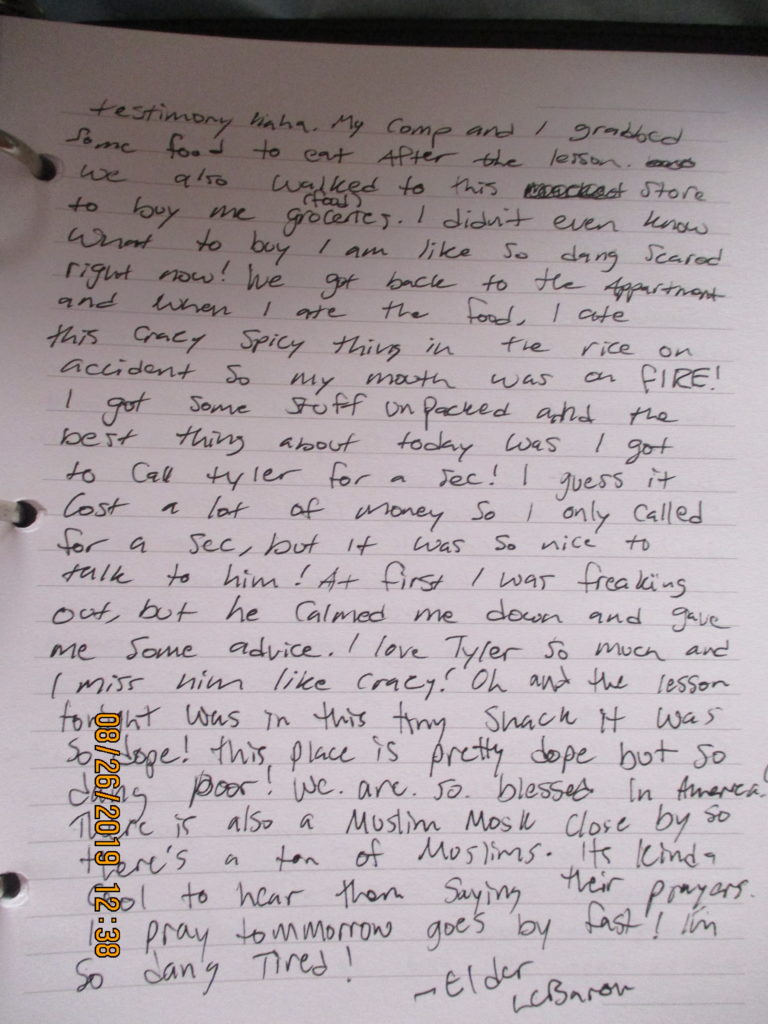 testimony haha. My comp and I grabbed
some food to eat After the lesson.
we also walked to this store
(food)
to buy me groceries. I didn't even know
what to buy I am like so dang scared
right now! We got back to the Appartment
and when I ate the food, I ate
this crazy spicy thing in the rice on
accident so my mouth was on FIRE!
I got some stuff unpacked and the
best thing about today was I got
to call Tyler for a sec! I guess it
Cost a lot of money so I only called
for a sec, but it was so nice to
talk to him! At first I was freaking
out, but he calmed me down and gave
me some advice. I love Tyler so much and
I miss him like crazy! Oh and the lesson
tonight was in this tiny shack it was
so dope! this place is pretty dope but so
dang poor! We. are. so. blessed In America!
There is also a Muslim Mosk close by so
there's a ton of Muslims. Its kinda
cool to hear them saying their prayers.
I pray tommorrow goes by fast! I'm
so dang Tired!
- Elder
LeBaron
08/26/2019 12:38